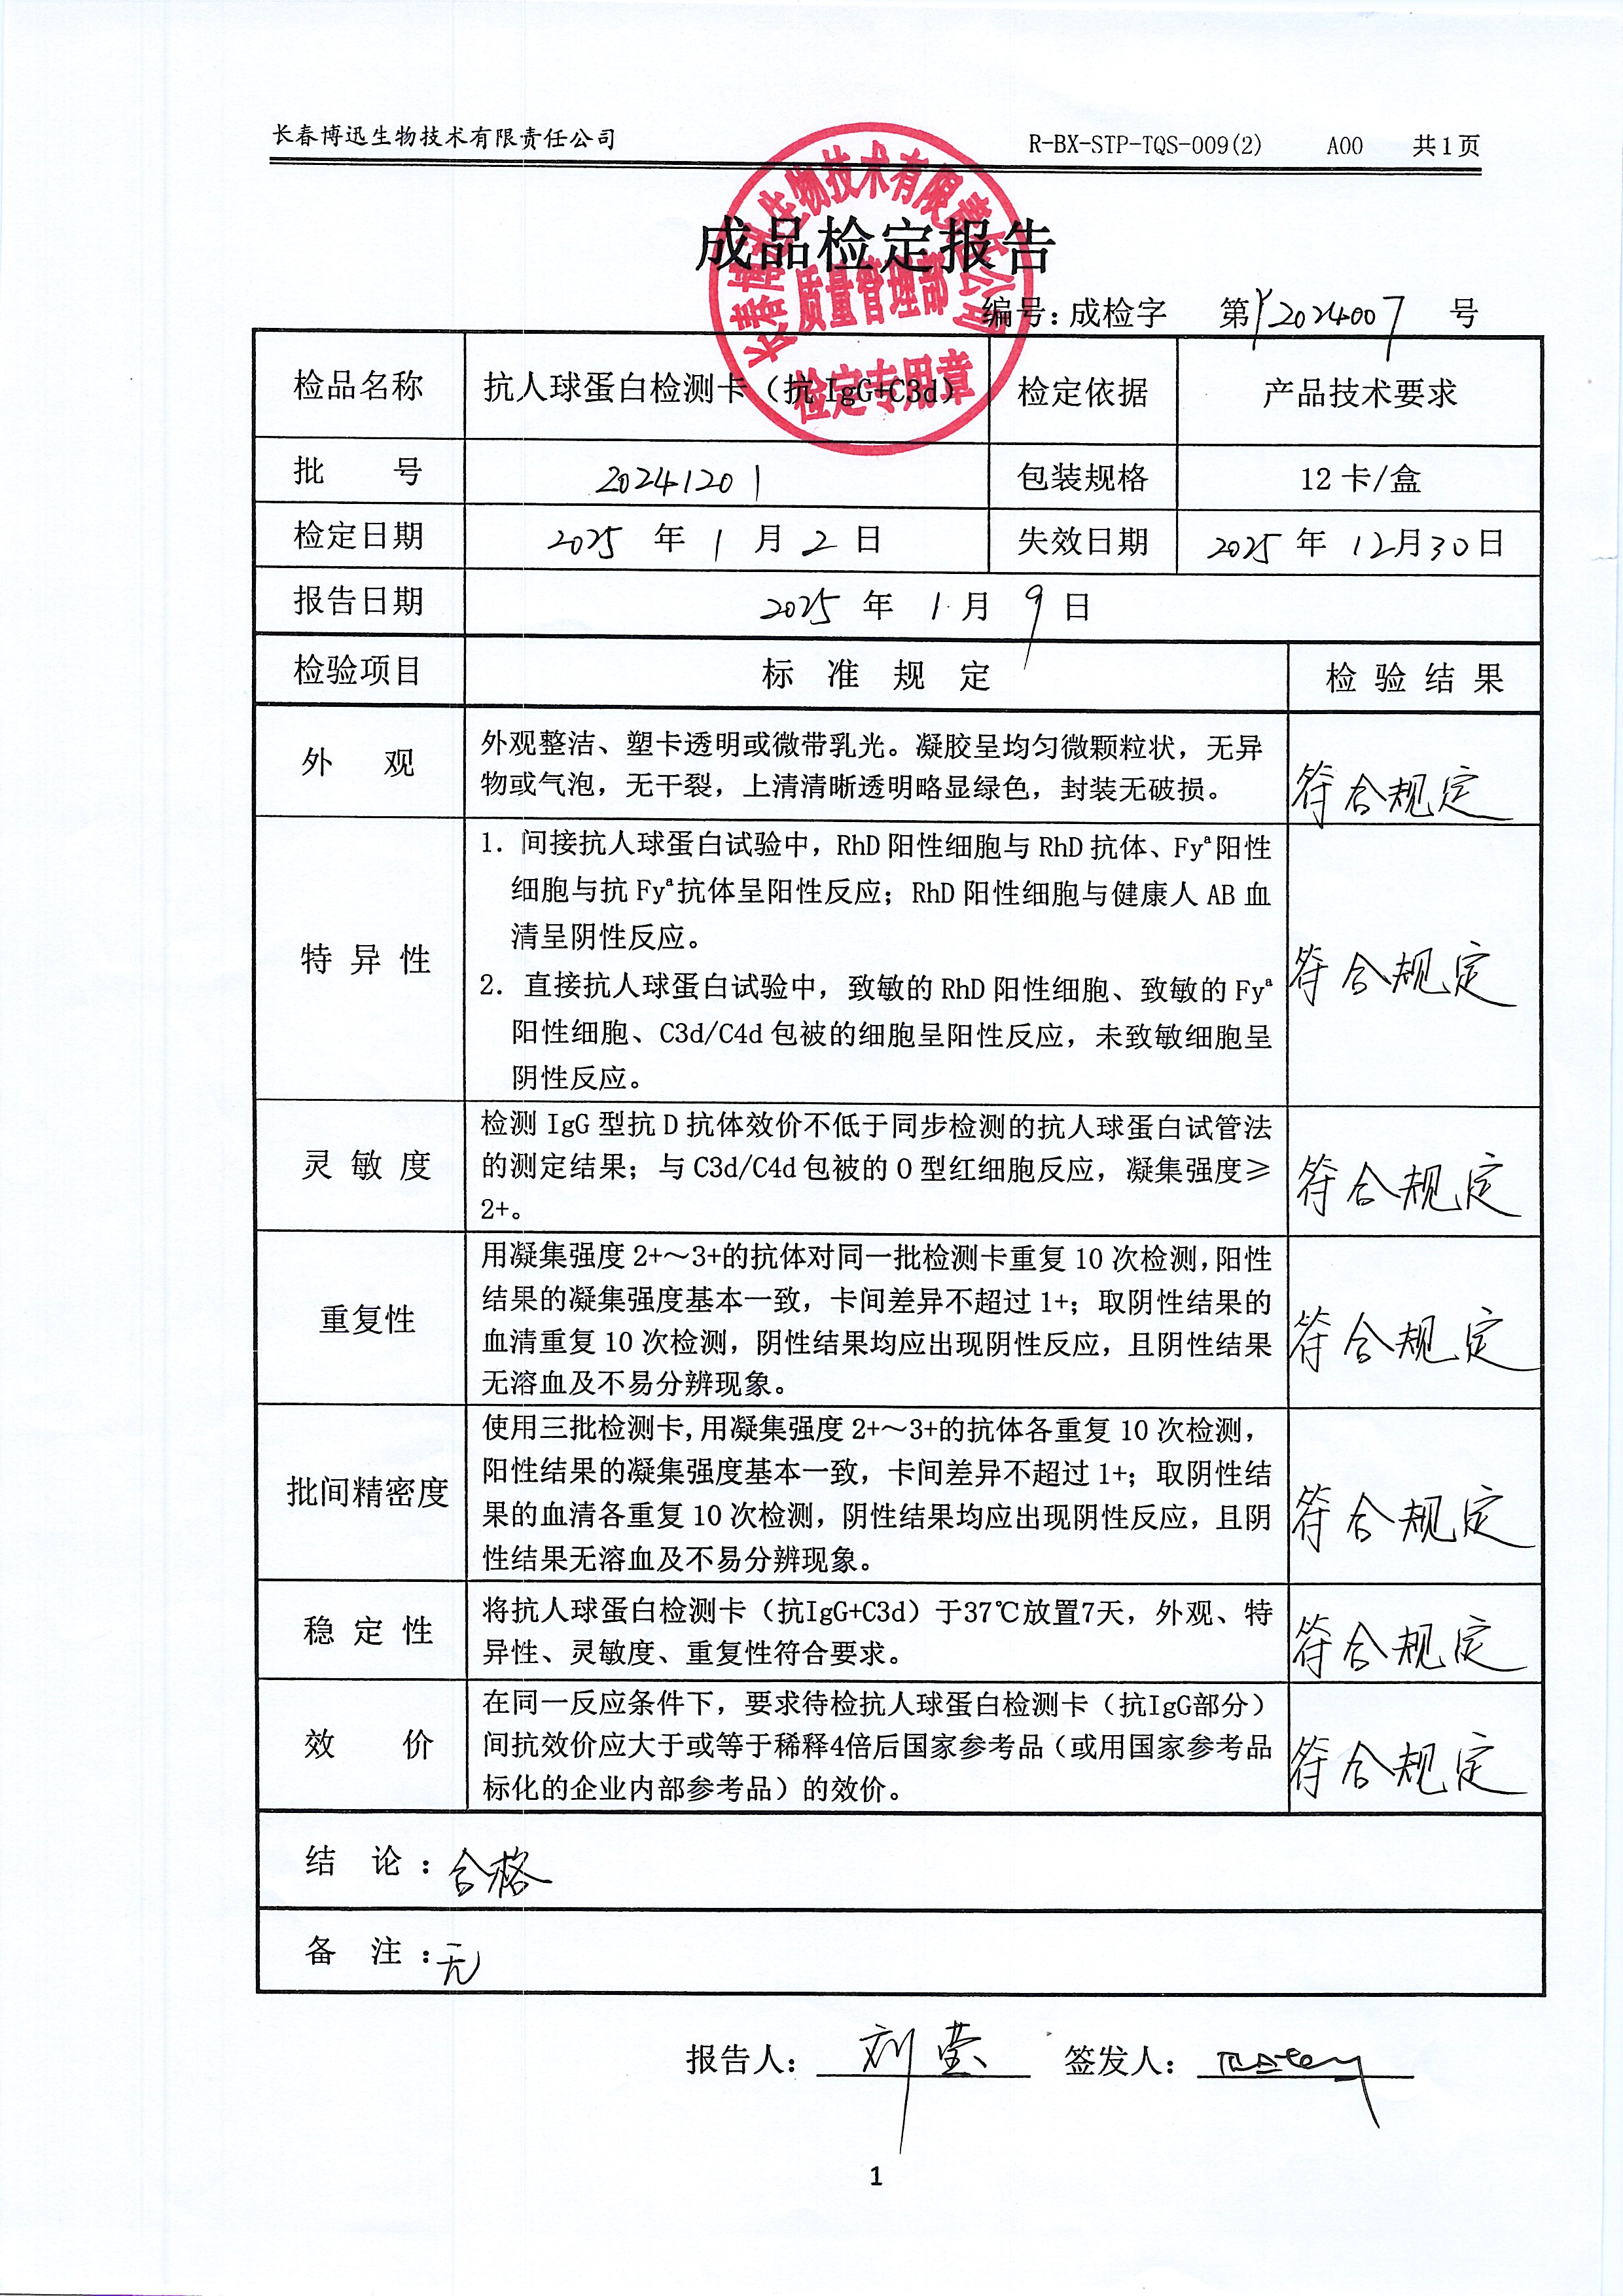 长春博迅生物技术有限责任公司 R-BX-STP-TQS-009(2) A00 共1页
长春博迅生物技术有限责任公司
质量管理部
检定专用章
成品检定报告
编号：成检字 第Y2024007号
检品名称 抗人球蛋白检测卡（抗IgG+C3d） 检定依据 产品技术要求
批 号 20241201 包装规格 12卡/盒
检定日期 2025年1月2日 失效日期 2025年12月30日
报告日期 2025年1月9日
检验项目 标准规定 检验结果
外 观 外观整洁、塑卡透明或微带乳光。凝胶呈均匀微颗粒状，无异
物或气泡，无干裂，上清清晰透明略显绿色，封装无破损。 符合规定
1. 间接抗人球蛋白试验中，RhD阳性细胞与RhD抗体、Fyª阳性
细胞与抗Fyª抗体呈阳性反应；RhD阳性细胞与健康人AB血
清呈阴性反应。
特异性 符合规定
2. 直接抗人球蛋白试验中，致敏的RhD阳性细胞、致敏的Fyª
阳性细胞、C3d/C4d包被的细胞呈阳性反应，未致敏细胞呈
阴性反应。
检测IgG型抗D抗体效价不低于同步检测的抗人球蛋白试管法
灵敏度 的测定结果；与C3d/C4d包被的O型红细胞反应，凝集强度≥ 符合规定
2+。
用凝集强度2+～3+的抗体对同一批检测卡重复10次检测,阳性
重复性 结果的凝集强度基本一致，卡间差异不超过1+；取阴性结果的 符合规定
血清重复10次检测，阴性结果均应出现阴性反应，且阴性结果
无溶血及不易分辨现象。
使用三批检测卡,用凝集强度2+～3+的抗体各重复10次检测，
批间精密度 阳性结果的凝集强度基本一致，卡间差异不超过1+；取阴性结 符合规定
果的血清各重复10次检测，阴性结果均应出现阴性反应，且阴
性结果无溶血及不易分辨现象。
稳定性 将抗人球蛋白检测卡（抗IgG+C3d）于37℃放置7天，外观、特 符合规定
异性、灵敏度、重复性符合要求。
在同一反应条件下，要求待检抗人球蛋白检测卡（抗IgG部分）
效 价 间抗效价应大于或等于稀释4倍后国家参考品（或用国家参考品 符合规定
标化的企业内部参考品）的效价。
结 论：合格
备 注：无
报告人：刘莹 签发人：
1